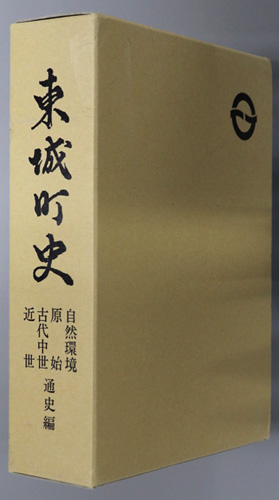 東城町史
自然環境
原始
古代中世
近世
通史編